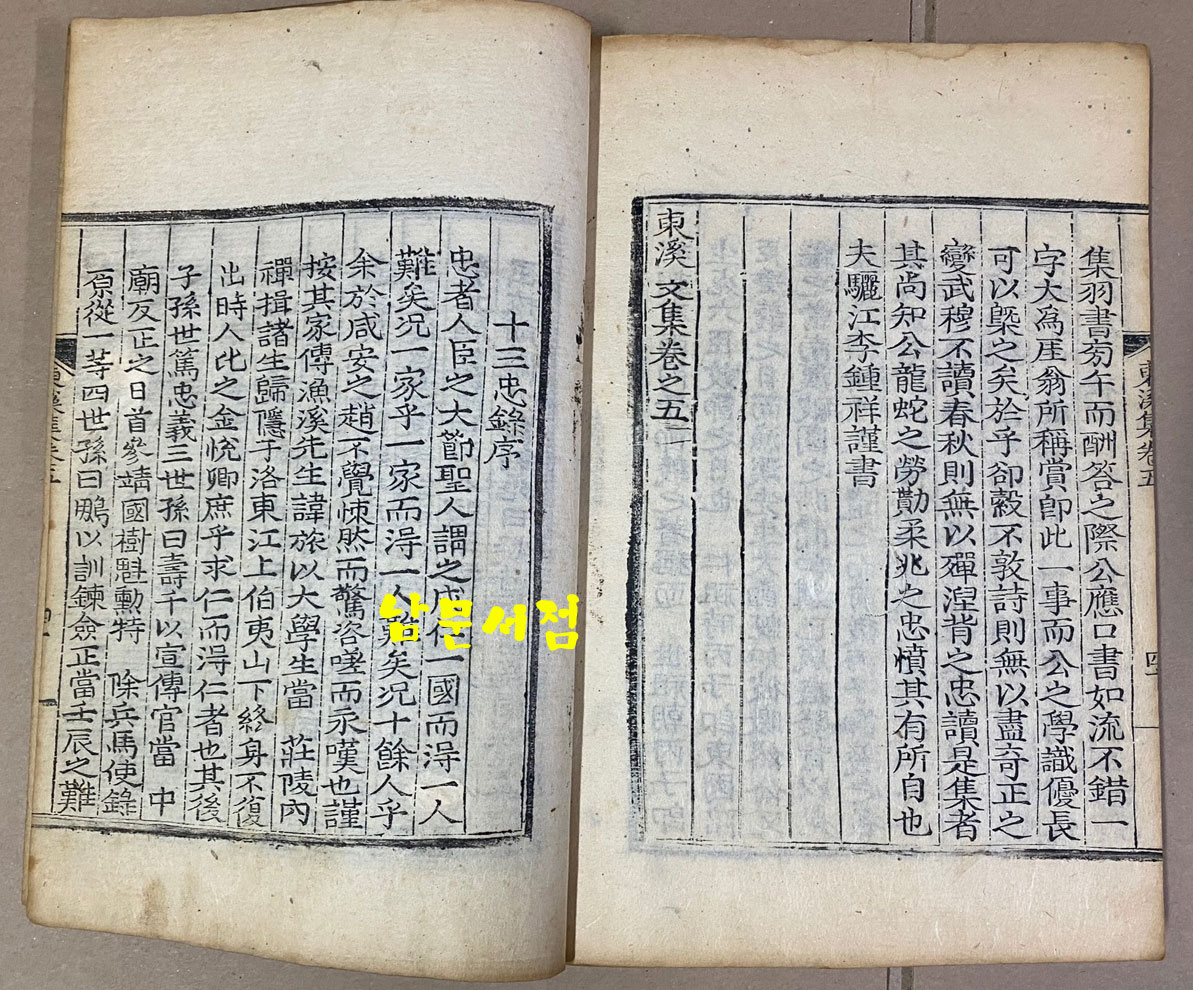 集羽書旁午而酬答之際公應口書如流不錯一
字大為厓翁所稱賞卽此一事而公之學識優長
可以槩之矣於乎卻縠不敦詩則無以盡奇正之
變武穆不讀春秋則無以殫湼背之忠讀是集者
其尚知公龍蛇之勞勩柔兆之忠憤其有所自也
夫驪江李鍾祥謹書
東溪文集卷之五
東溪集卷五
四
十三忠錄序
忠者人臣之大節聖人謂之成仁一國而淂一人
難矣况一家乎一家而淂一人難矣况十餘人乎
余於咸安之趙不覺悚然而驚咨嗟而永嘆也謹
按其家傳漁溪先生諱旅以大學生當 莊陵內
禪揖諸生歸隱于洛東江上伯夷山下終身不復
出時人比之金悅卿庶乎求仁而淂仁者也其後
子孫世篤忠義三世孫曰壽千以宣傳官當 中
廟反正之日首參靖國樹魁勳特 除兵馬使錄
原從一等四世孫曰鵬以訓鍊僉正當壬辰之難
南門서점